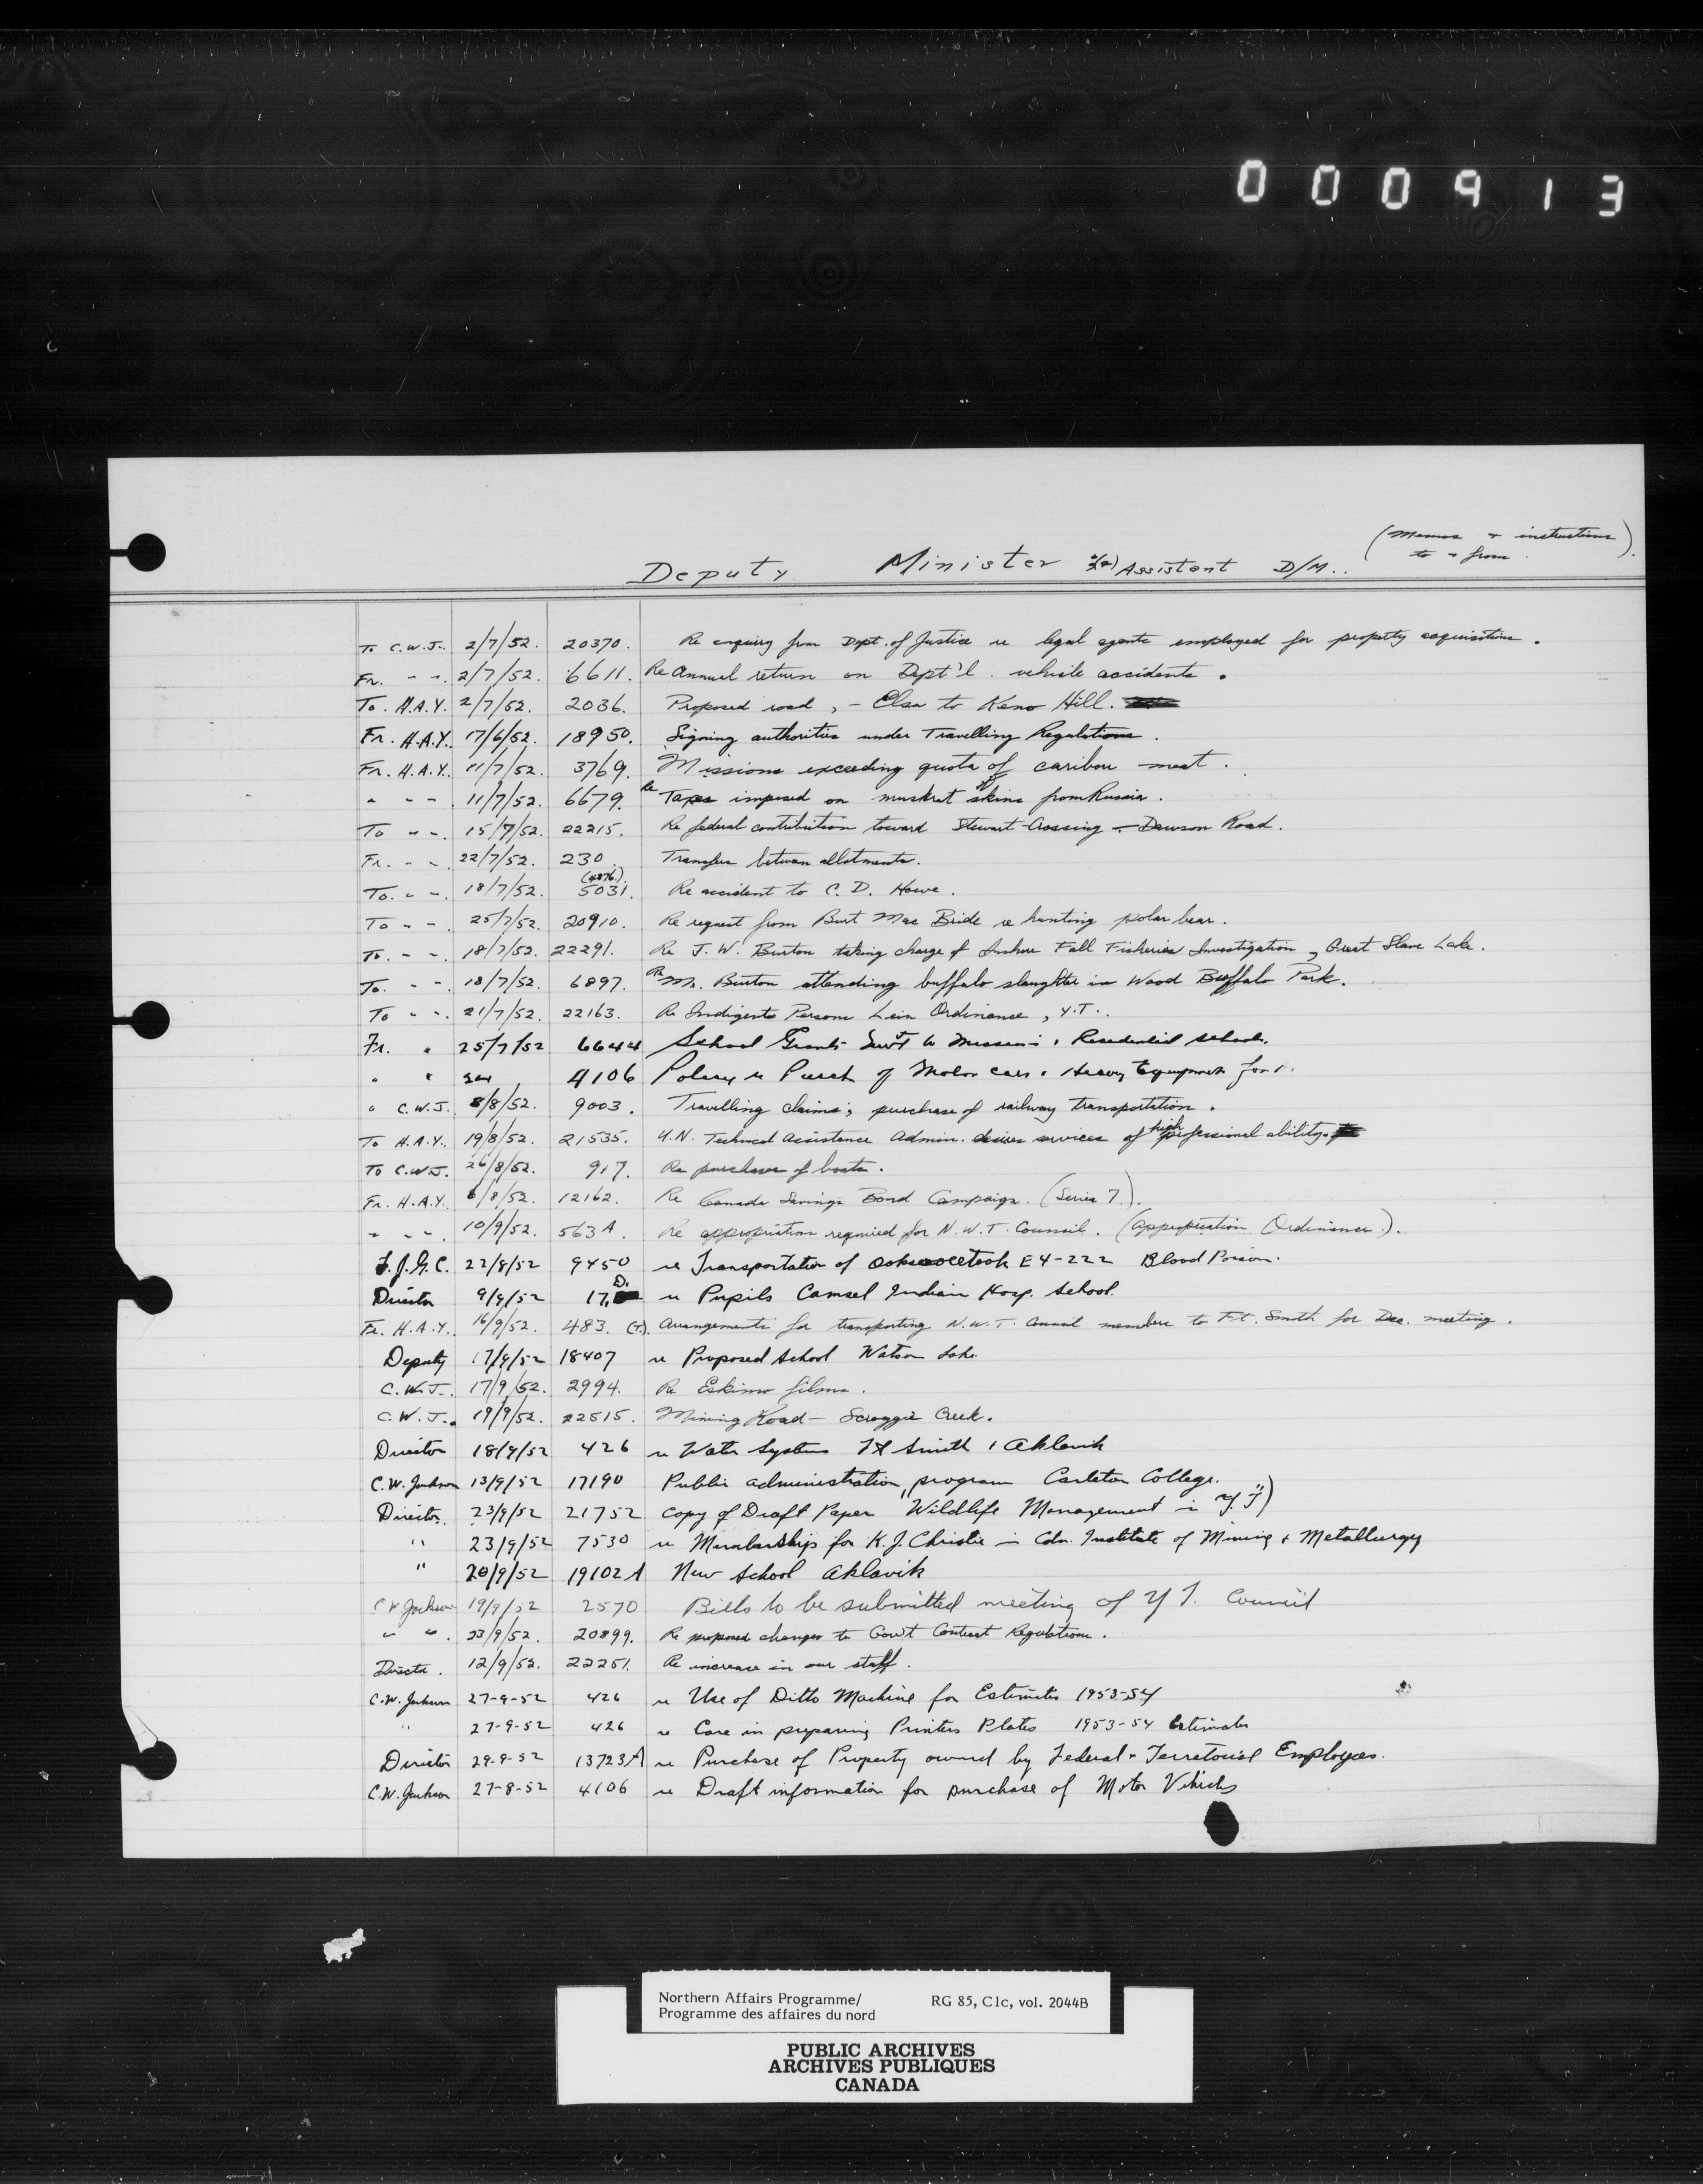 000913
(Memos & instructions
to & from).
Deputy Minister &(or) Assistant D/M..
To C.W.J. 2/7/52. 20370. Re enquiry from Dept. of Justice re legal agents employed for property acquisition.
Fr. " ". 2/7/52. 6611. Re Annual return on Dept'l. vehicle accidents.
To. H.A.Y. 2/7/52. 2036. Proposed road, - Elsa to Keno Hill.
Fr. H.A.Y. 17/6/52. 18950. Signing authorities under Travelling Regulations.
Fr. H.A.Y. 11/7/52. 3769. Missions exceeding quota of caribou meat.
" " " 11/7/52. 6679. Re Taxes imposed on muskrat skins from Russia.
To " ". 15/7/52. 22215. Re federal contribution toward Stewart Crossing - Dawson Road.
Fr. " " 22/7/52. 230. Transfer between allotments.
To. " ". 18/7/52. (4876). 5031. Re accident to C. D. Howe.
To " ". 25/7/52. 20910. Re request from Burt Mac Bride re hunting polar bear.
To. " ". 18/7/52. 22291. Re J. W. Burton taking charge of Inshore Fall Fisheries Investigation, Great Slave Lake.
To. " ". 18/7/52. 6897. Re Mr. Burton attending buffalo slaughter in Wood Buffalo Park.
To " ". 21/7/52. 22163. Re Indigents Persons Lein Ordinance, Y.T..
Fr. " 25/7/52 6644 School Grants Residential schools.
" " 4106 Policy re Purch of Motor cars & Heavy Equipment
" C.W.J. 8/8/52. 9003. Travelling claims; purchase of railway transportation.
To H.A.Y. 19/8/52. 21535. U.N. Technical Assistance Admin. desires services of high professional ability.
To C.W.J. 26/8/52. 917. Re purchases of boats.
Fr. H.A.Y. 6/8/52. 12162. Re Canada Savings Bond Campaign. (Series 7.).
" " ". 10/9/52. 563A. Re appropriation required for N.W.T. Council. (Appropriation Ordinance.).
F.J.G.C. 22/8/52 9450 re Transportation of E4-222 Blood Poison.
Director 9/9/52 17, D. re Pupils Camsel Indian Hosp. School.
Fr. H.A.Y. 16/9/52. 483. (T). Arrangements for transporting N.W.T. Council members to Ft. Smith for Dec. meeting.
Deputy 17/9/52 18407 re Proposed School Watson Lake
C.W.J. 17/9/52. 2994. Re Eskimo films.
C.W.J. 19/9/52. 22515. Mining Road - Scroggie Creek.
Director 18/9/52 426 re Water Systems Ft Smith & Aklavik
C.W. Jackson 13/9/52 17190 Public administration program Carleton College.
Director. 23/9/52 21752 copy of Draft Paper "Wildlife Management in Y.T")
" 23/9/52 7530 re Membership for K.J. Christie in Cdn. Institute of Mining & Metallurgy
" 20/9/52 19102A New School Aklavik
C W Jackson 19/9/52 2570 Bills to be submitted meeting of Y T. Council
" ". 23/9/52. 20899. Re proposed changes to Gov't Contract Regulations.
Director. 12/9/52. 22251. Re increase in our staff.
C.W. Jackson 27-9-52 426 re Use of Ditto Machine for Estimates 1953-54
" 27-9-52 426 re Care in preparing Printers Plates 1953-54 Estimates
Director 29-9-52 13723A re Purchase of Property owned by Federal & Territorial Employees.
C.W. Jackson 27-8-52 4106 re Draft information for purchase of Motor Vehicles
Northern Affairs Programme/ RG 85, C1c, vol. 2044B
Programme des affaires du nord
PUBLIC ARCHIVES
ARCHIVES PUBLIQUES
CANADA